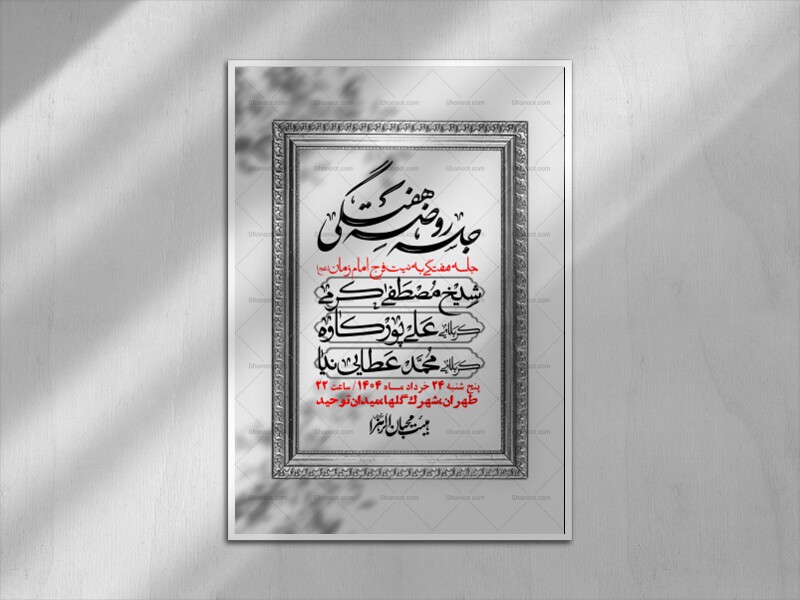 جلسه روضه هفتگی
جلسه هفتگی به نیت فرج امام زمان (عج)
شیخ مصطفی کرمی
کربلایی علی پورکاوه
کربلایی محمد عطایی نیا
پنج شنبه ۲۴ خرداد ماه ۱۴۰۴ / ساعت ۲۲
طهران، شهرک گلها، میدان توحید
هیئت محبان الزهرا
Ghonoot.com